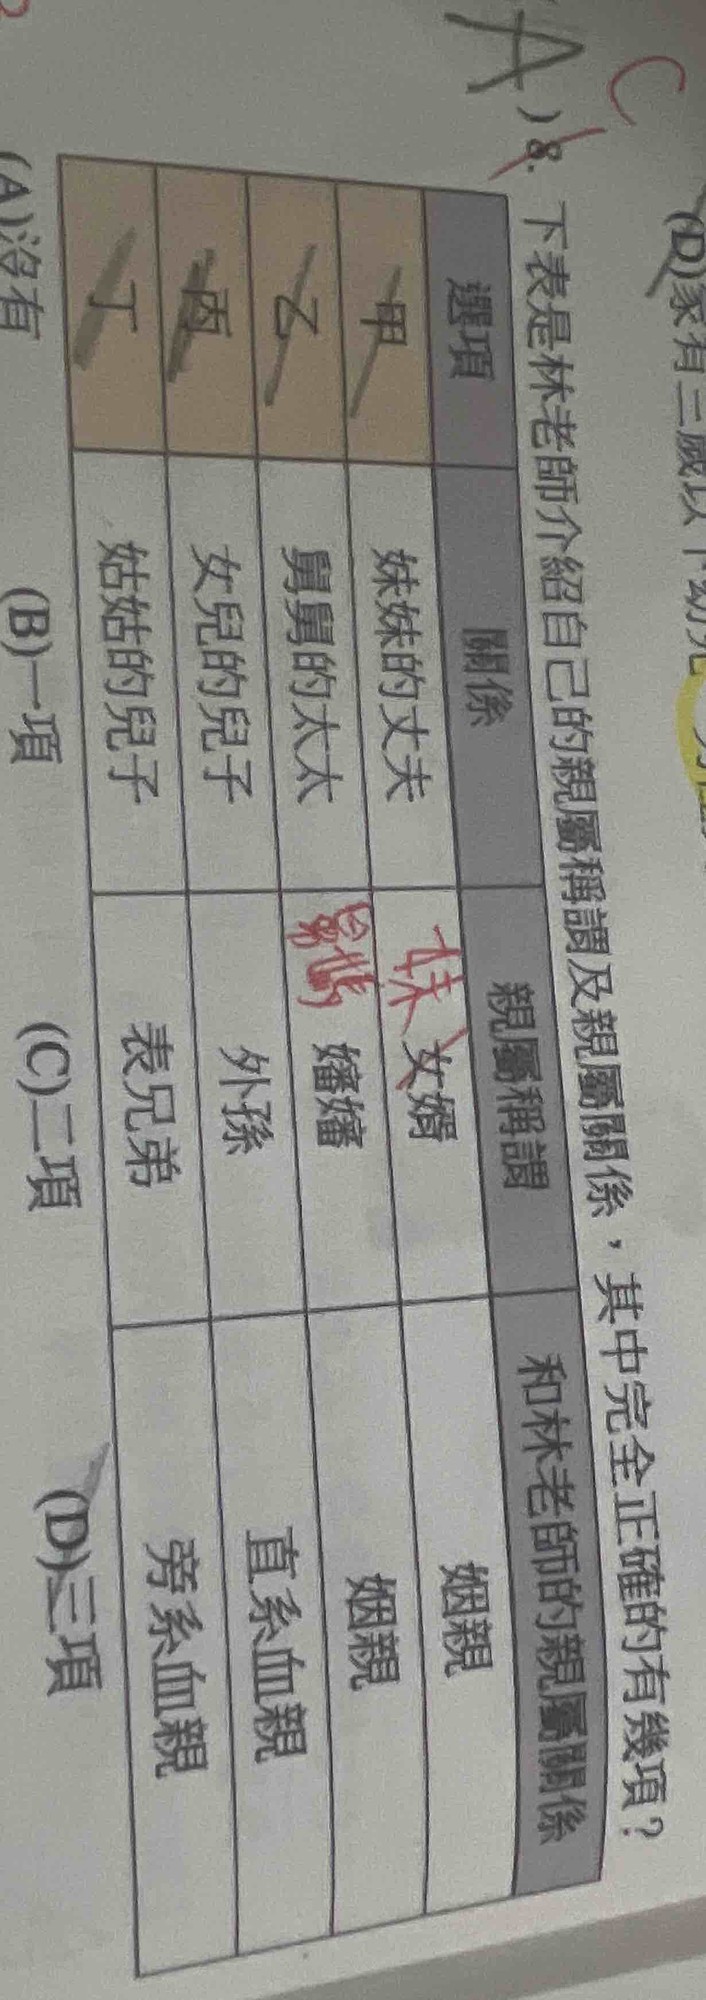 (D)家有三歲以下幼兒
C
(A)8. 下表是林老師介紹自己的親屬稱謂及親屬關係，其中完全正確的有幾項？
選項 關係 親屬稱謂 和林老師的親屬關係
甲 妹妹的丈夫 妹 女婿 姻親
乙 舅舅的太太 舅媽 嬸嬸 姻親
丙 女兒的兒子 外孫 直系血親
丁 姑姑的兒子 表兄弟 旁系血親
(A)沒有 (B)一項 (C)二項 (D)三項